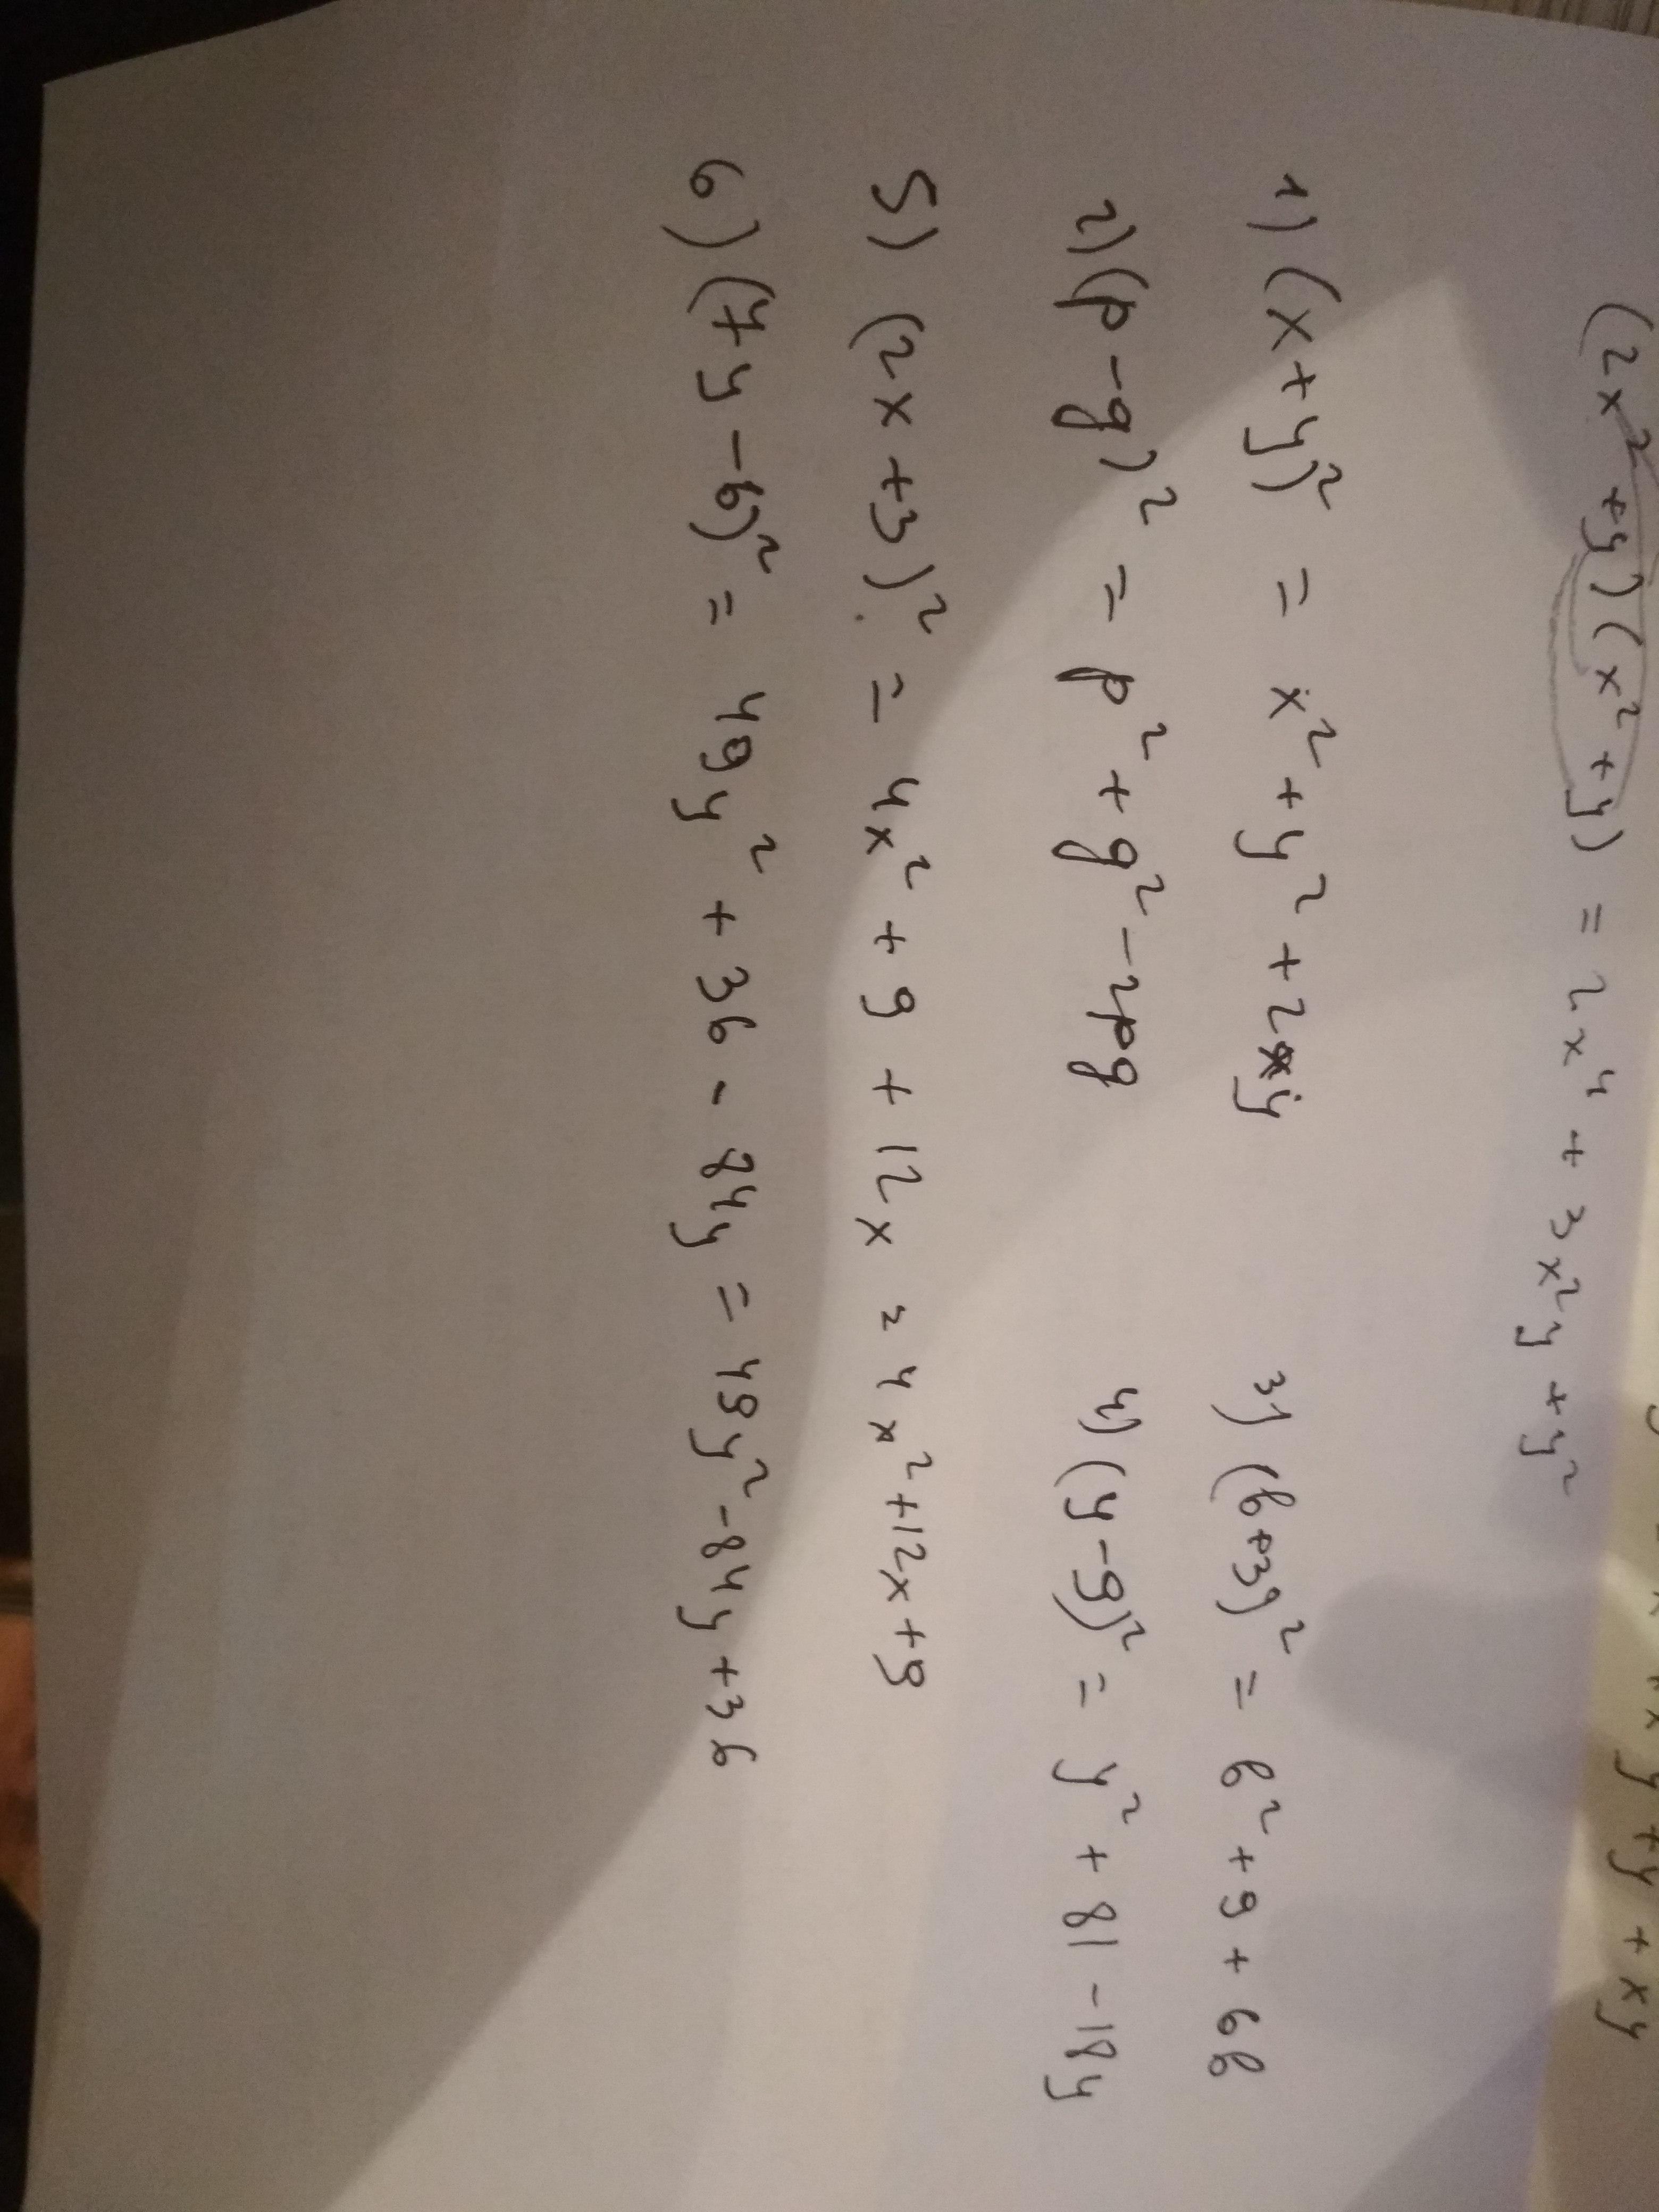 (2x² + y)(x² + y) = 2x⁴ + 3x²y + y²
1) (x + y)² = x² + y² + 2xy
3) (b+3)² = b² + 9 + 6b
2) (p - g)² = p² + g² - 2pg
4) (y - 9)² = y² + 81 - 18y
5) (2x + 3)² = 4x² + 9 + 12x = 4x² + 12x + 9
6) (7y - 6)² = 49y² + 36 - 84y = 49y² - 84y + 36